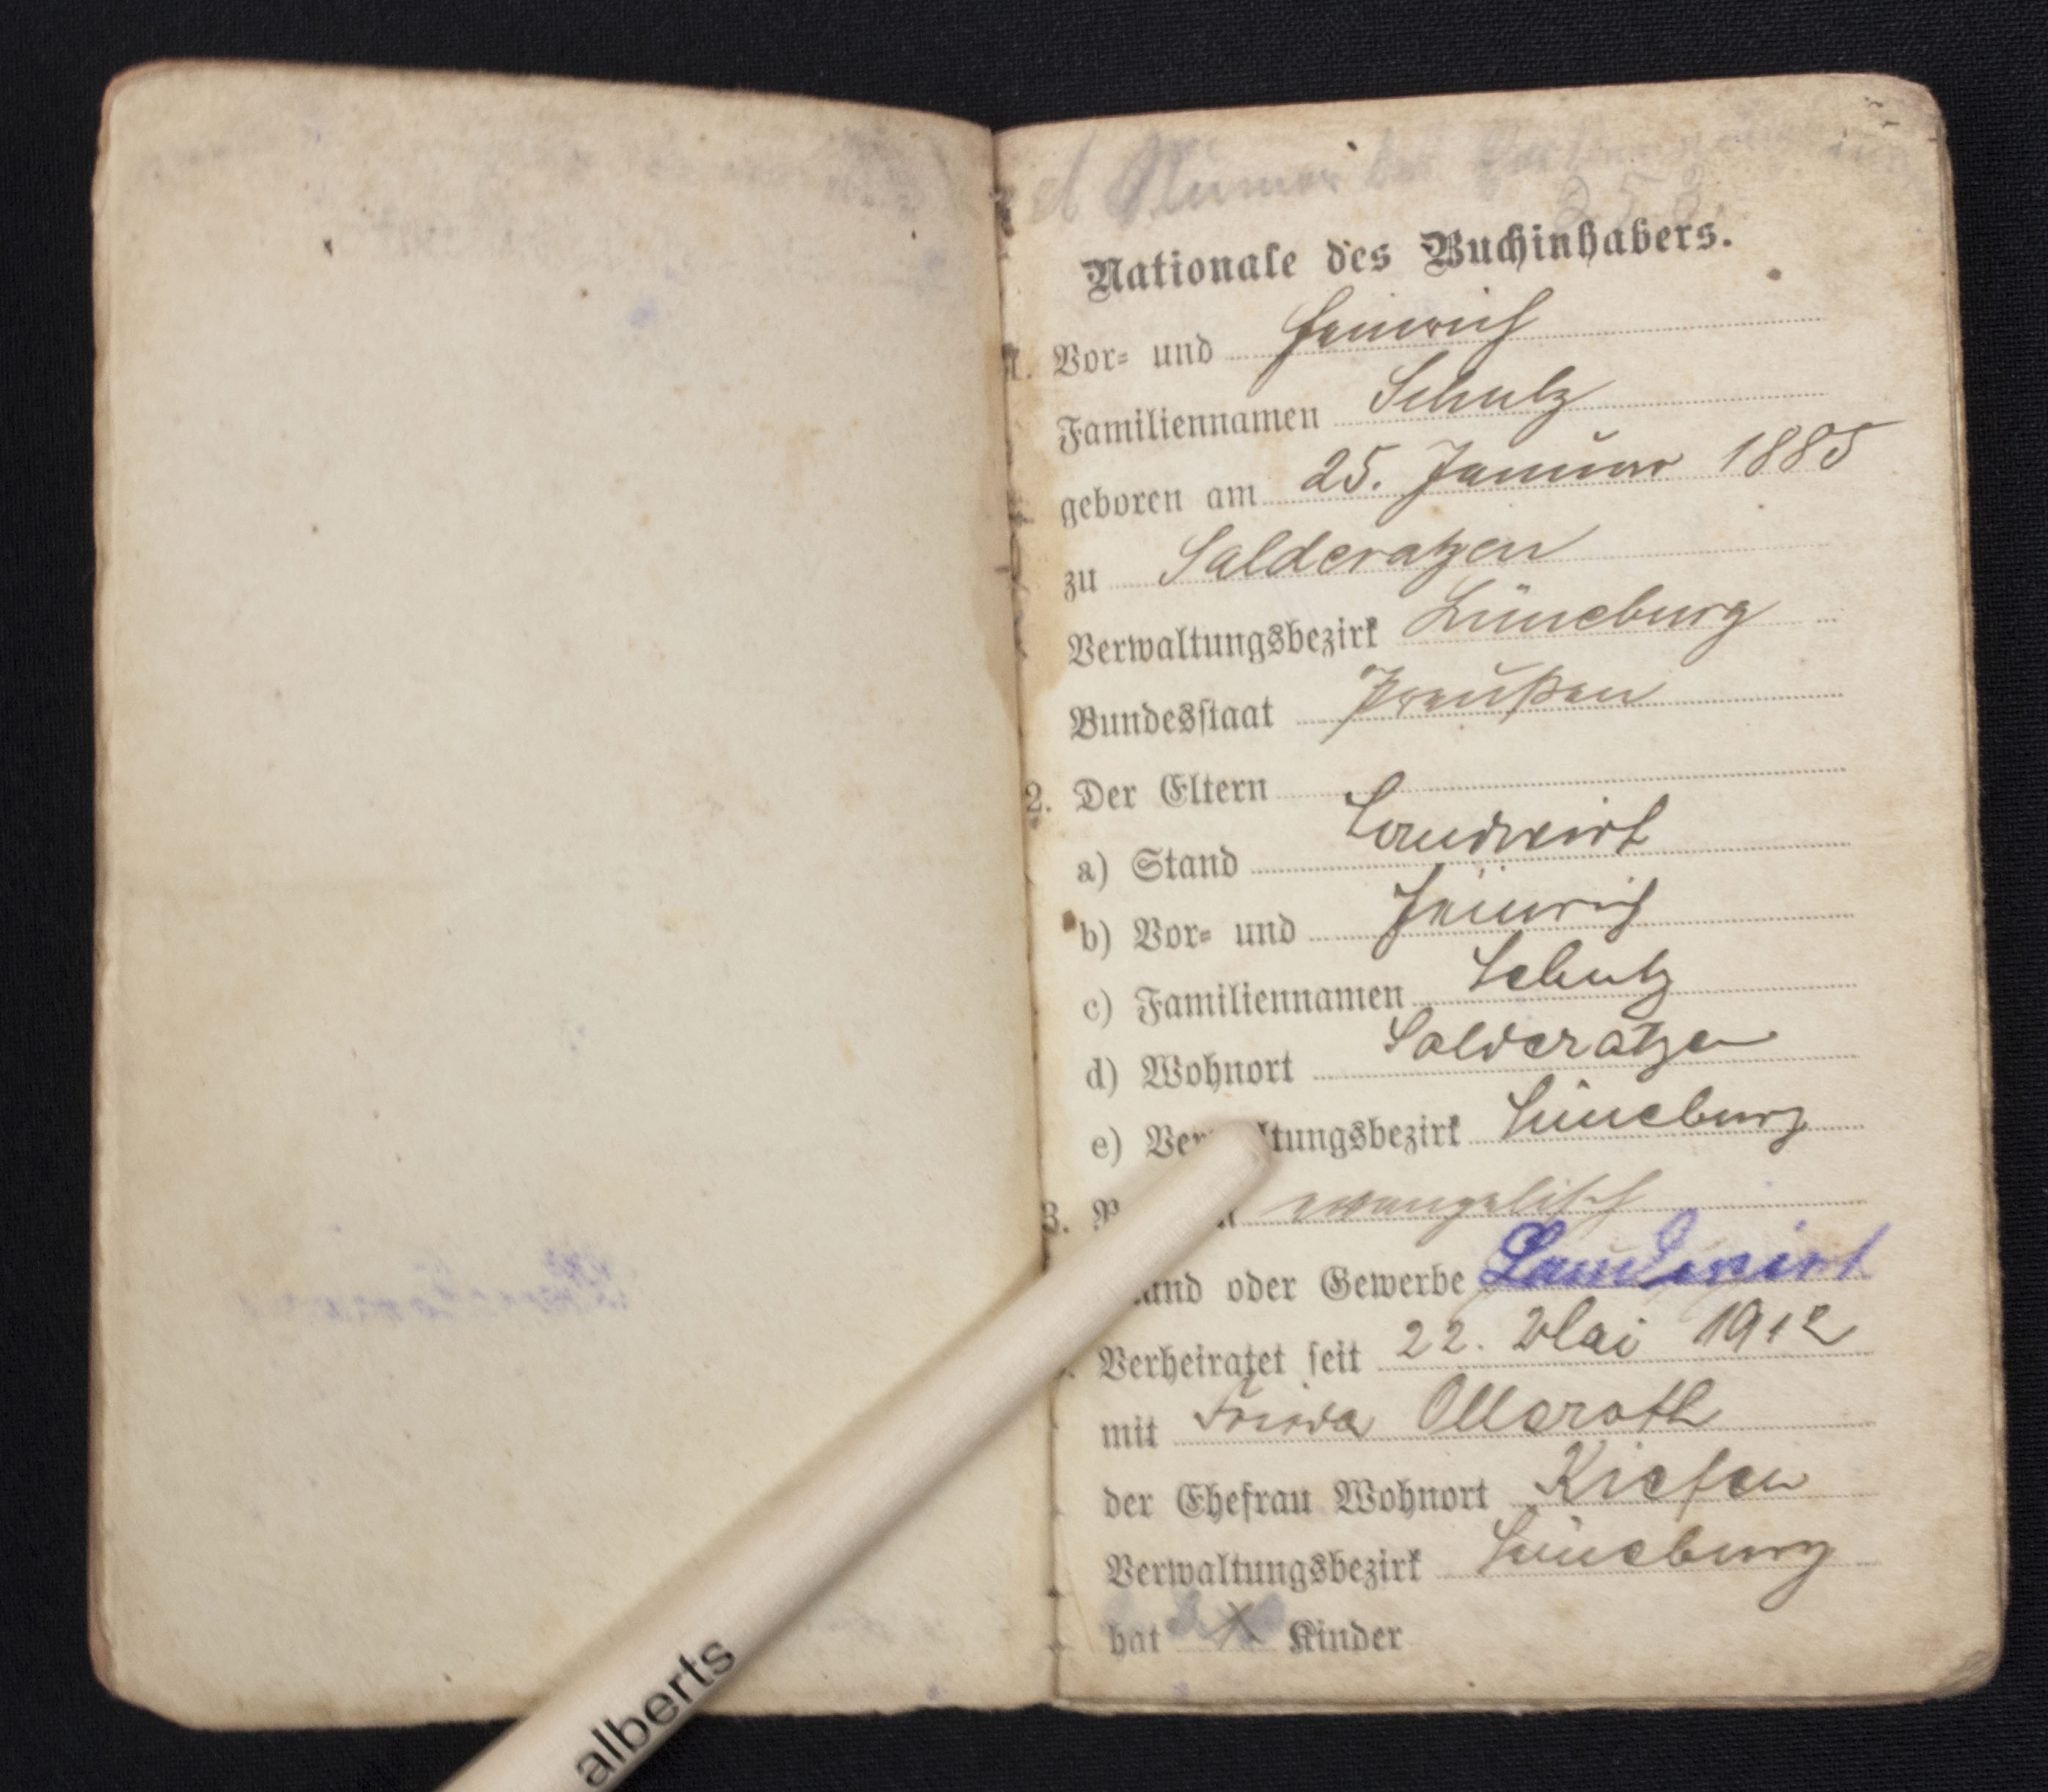 Nationale des Buchinhabers.
1. Vor- und Heinrich
Familiennamen Schulz
geboren am 25. Januar 1885
zu Salderatzen
Verwaltungsbezirk Lüneburg
Bundesstaat Preußen
2. Der Eltern
a) Stand Landwirt
b) Vor- und Heinrich
c) Familiennamen Schulz
d) Wohnort Salderatzen
e) Ver ltungsbezirk Lüneburg
3. evangelisch
and oder Gewerbe Landwirt
Verheiratet seit 22. Mai 1912
mit Frieda
der Ehefrau Wohnort Kiefen
Verwaltungsbezirk Lüneburg
hat Kinder
alberts